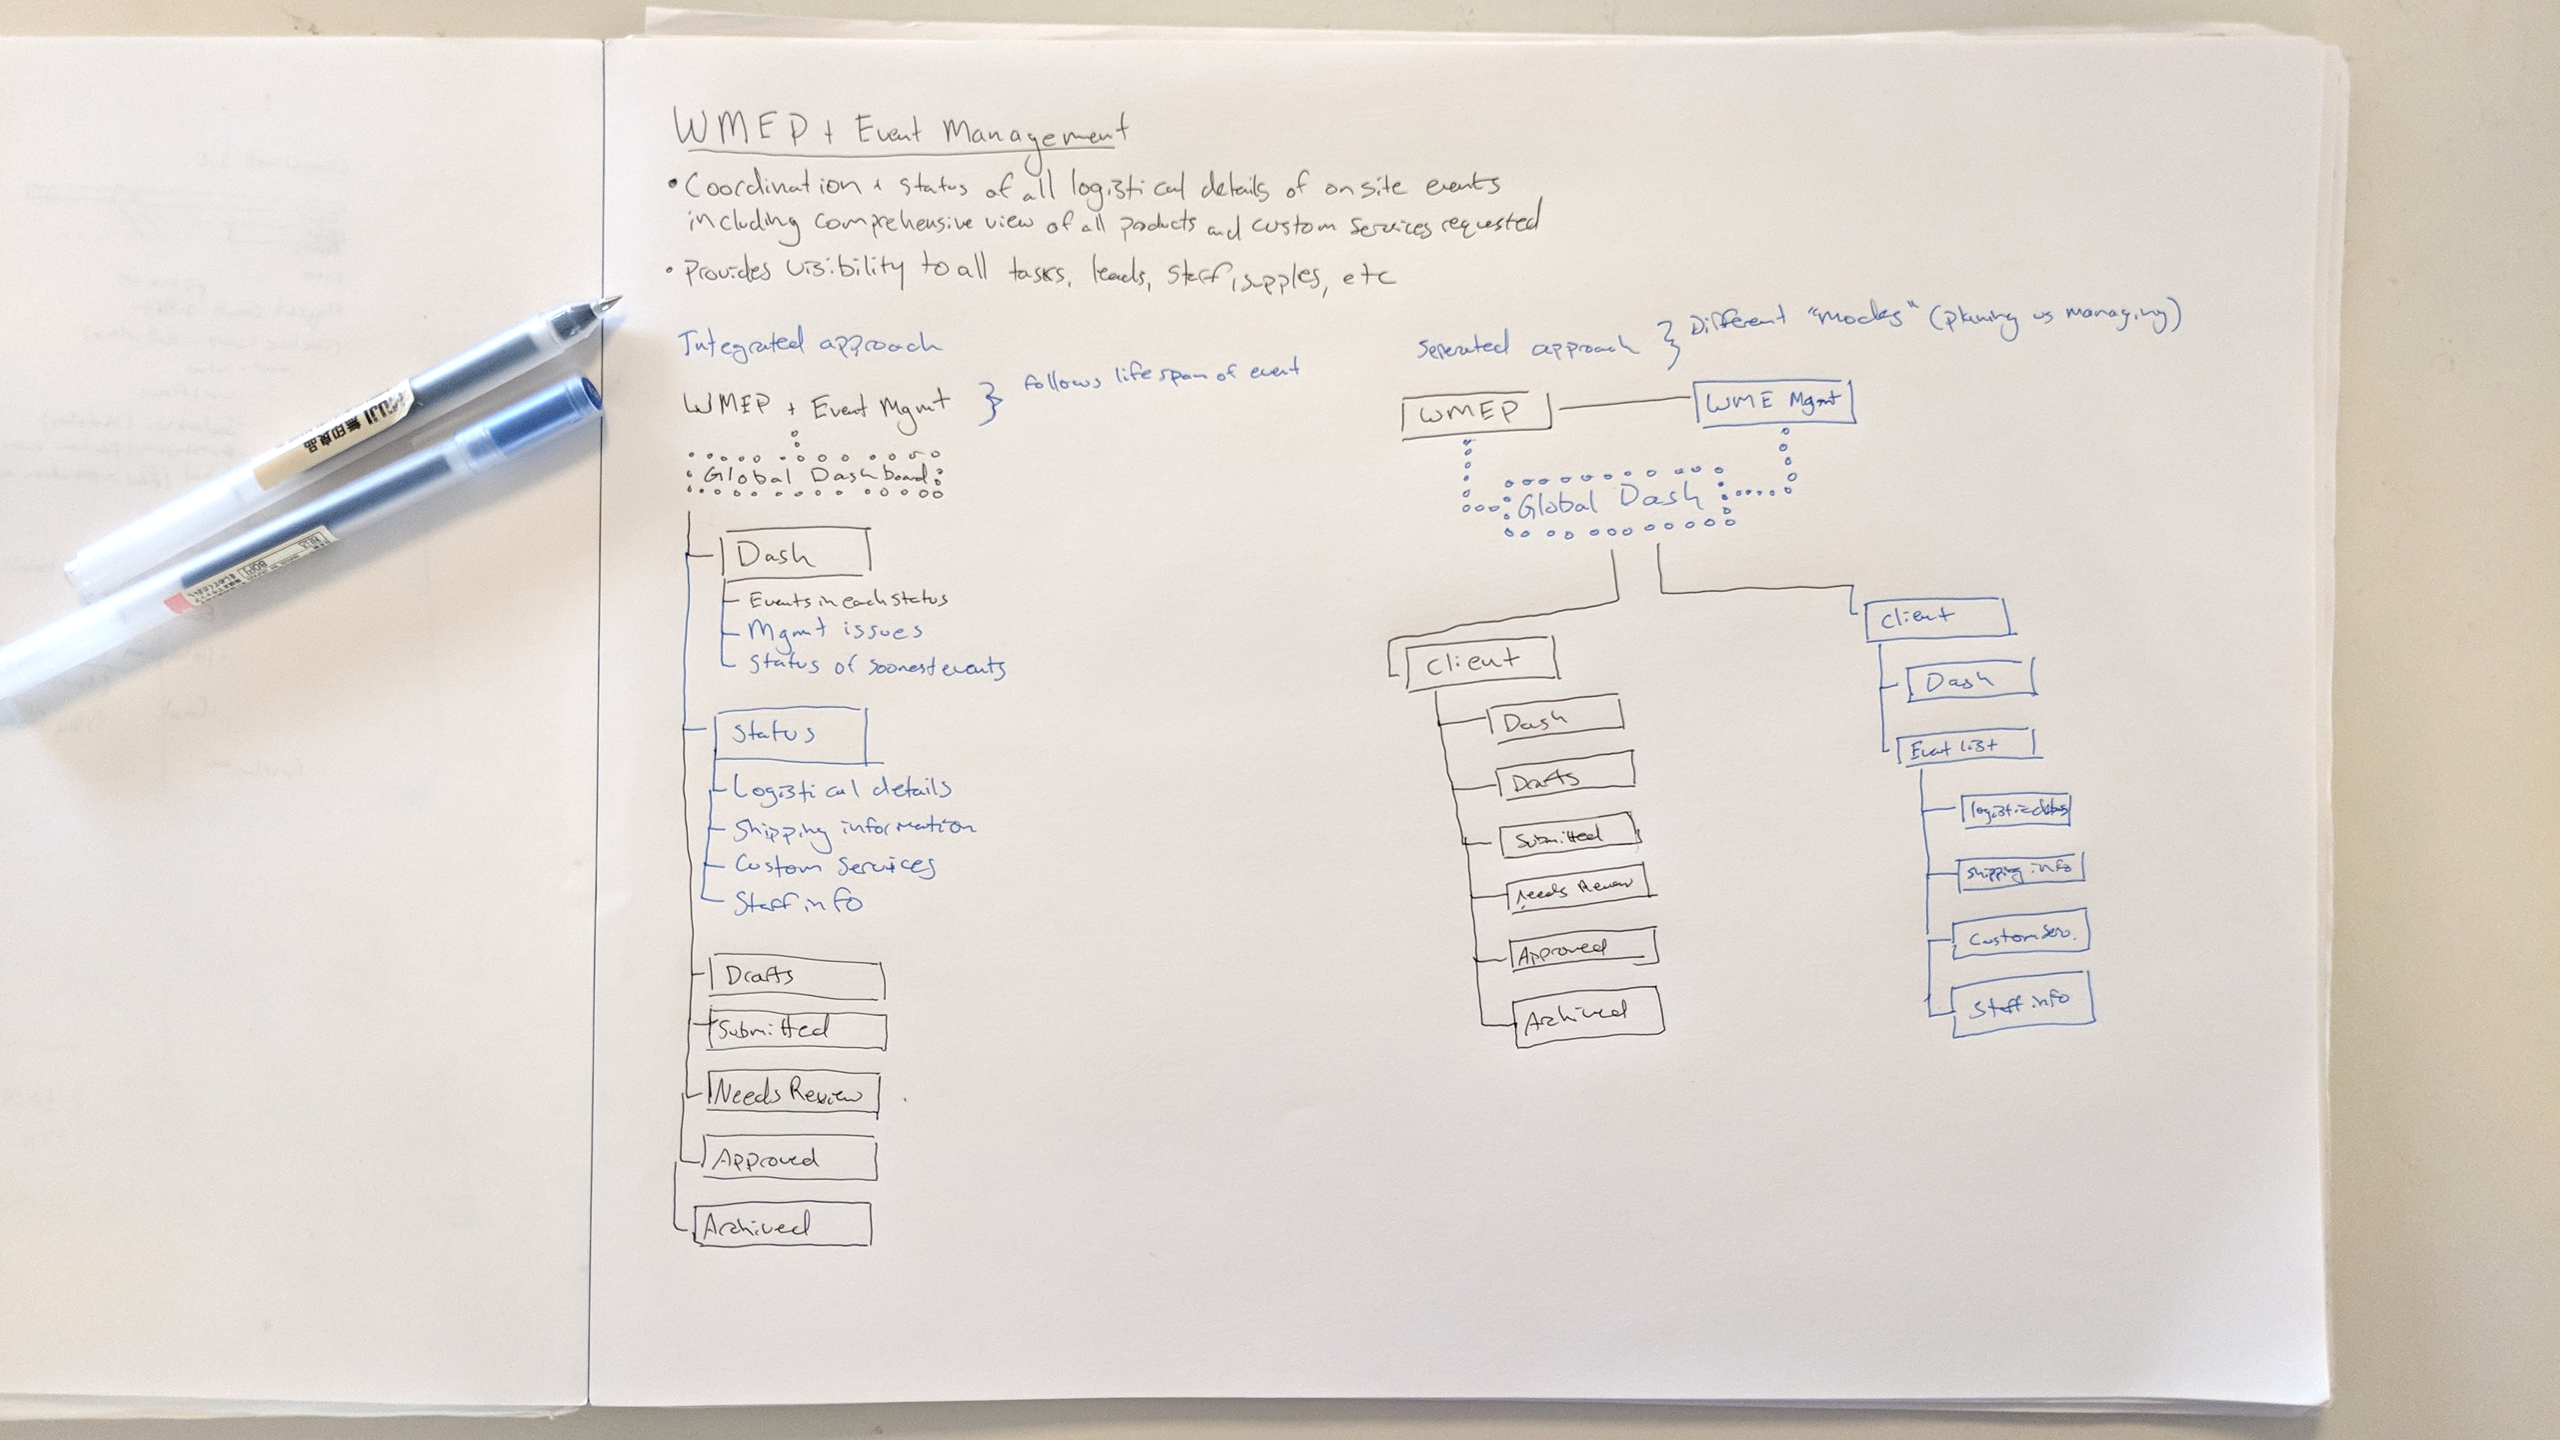 WMEP + Event Management
• Coordination + status of all logistical details of onsite events
including comprehensive view of all products and custom services requested
• Provides visibility to all tasks, leads, staff, supples, etc
Integrated approach
WMEP + Event Mgmt } follows lifespan of event
Global Dashboard
Dash
Events in each status
Mgmt issues
Status of soonest events
Status
Logistical details
Shipping information
Custom Services
Staff info
Drafts
Submitted
Needs Review
Approved
Archived
Seperated approach } Different "modes" (planning vs managing)
WMEP
WME Mgmt
Global Dash
Client
Dash
Drafts
Submitted
Needs Review
Approved
Archived
Client
Dash
Event list
Shipping info
Custom Serv.
Staff info
無印良品